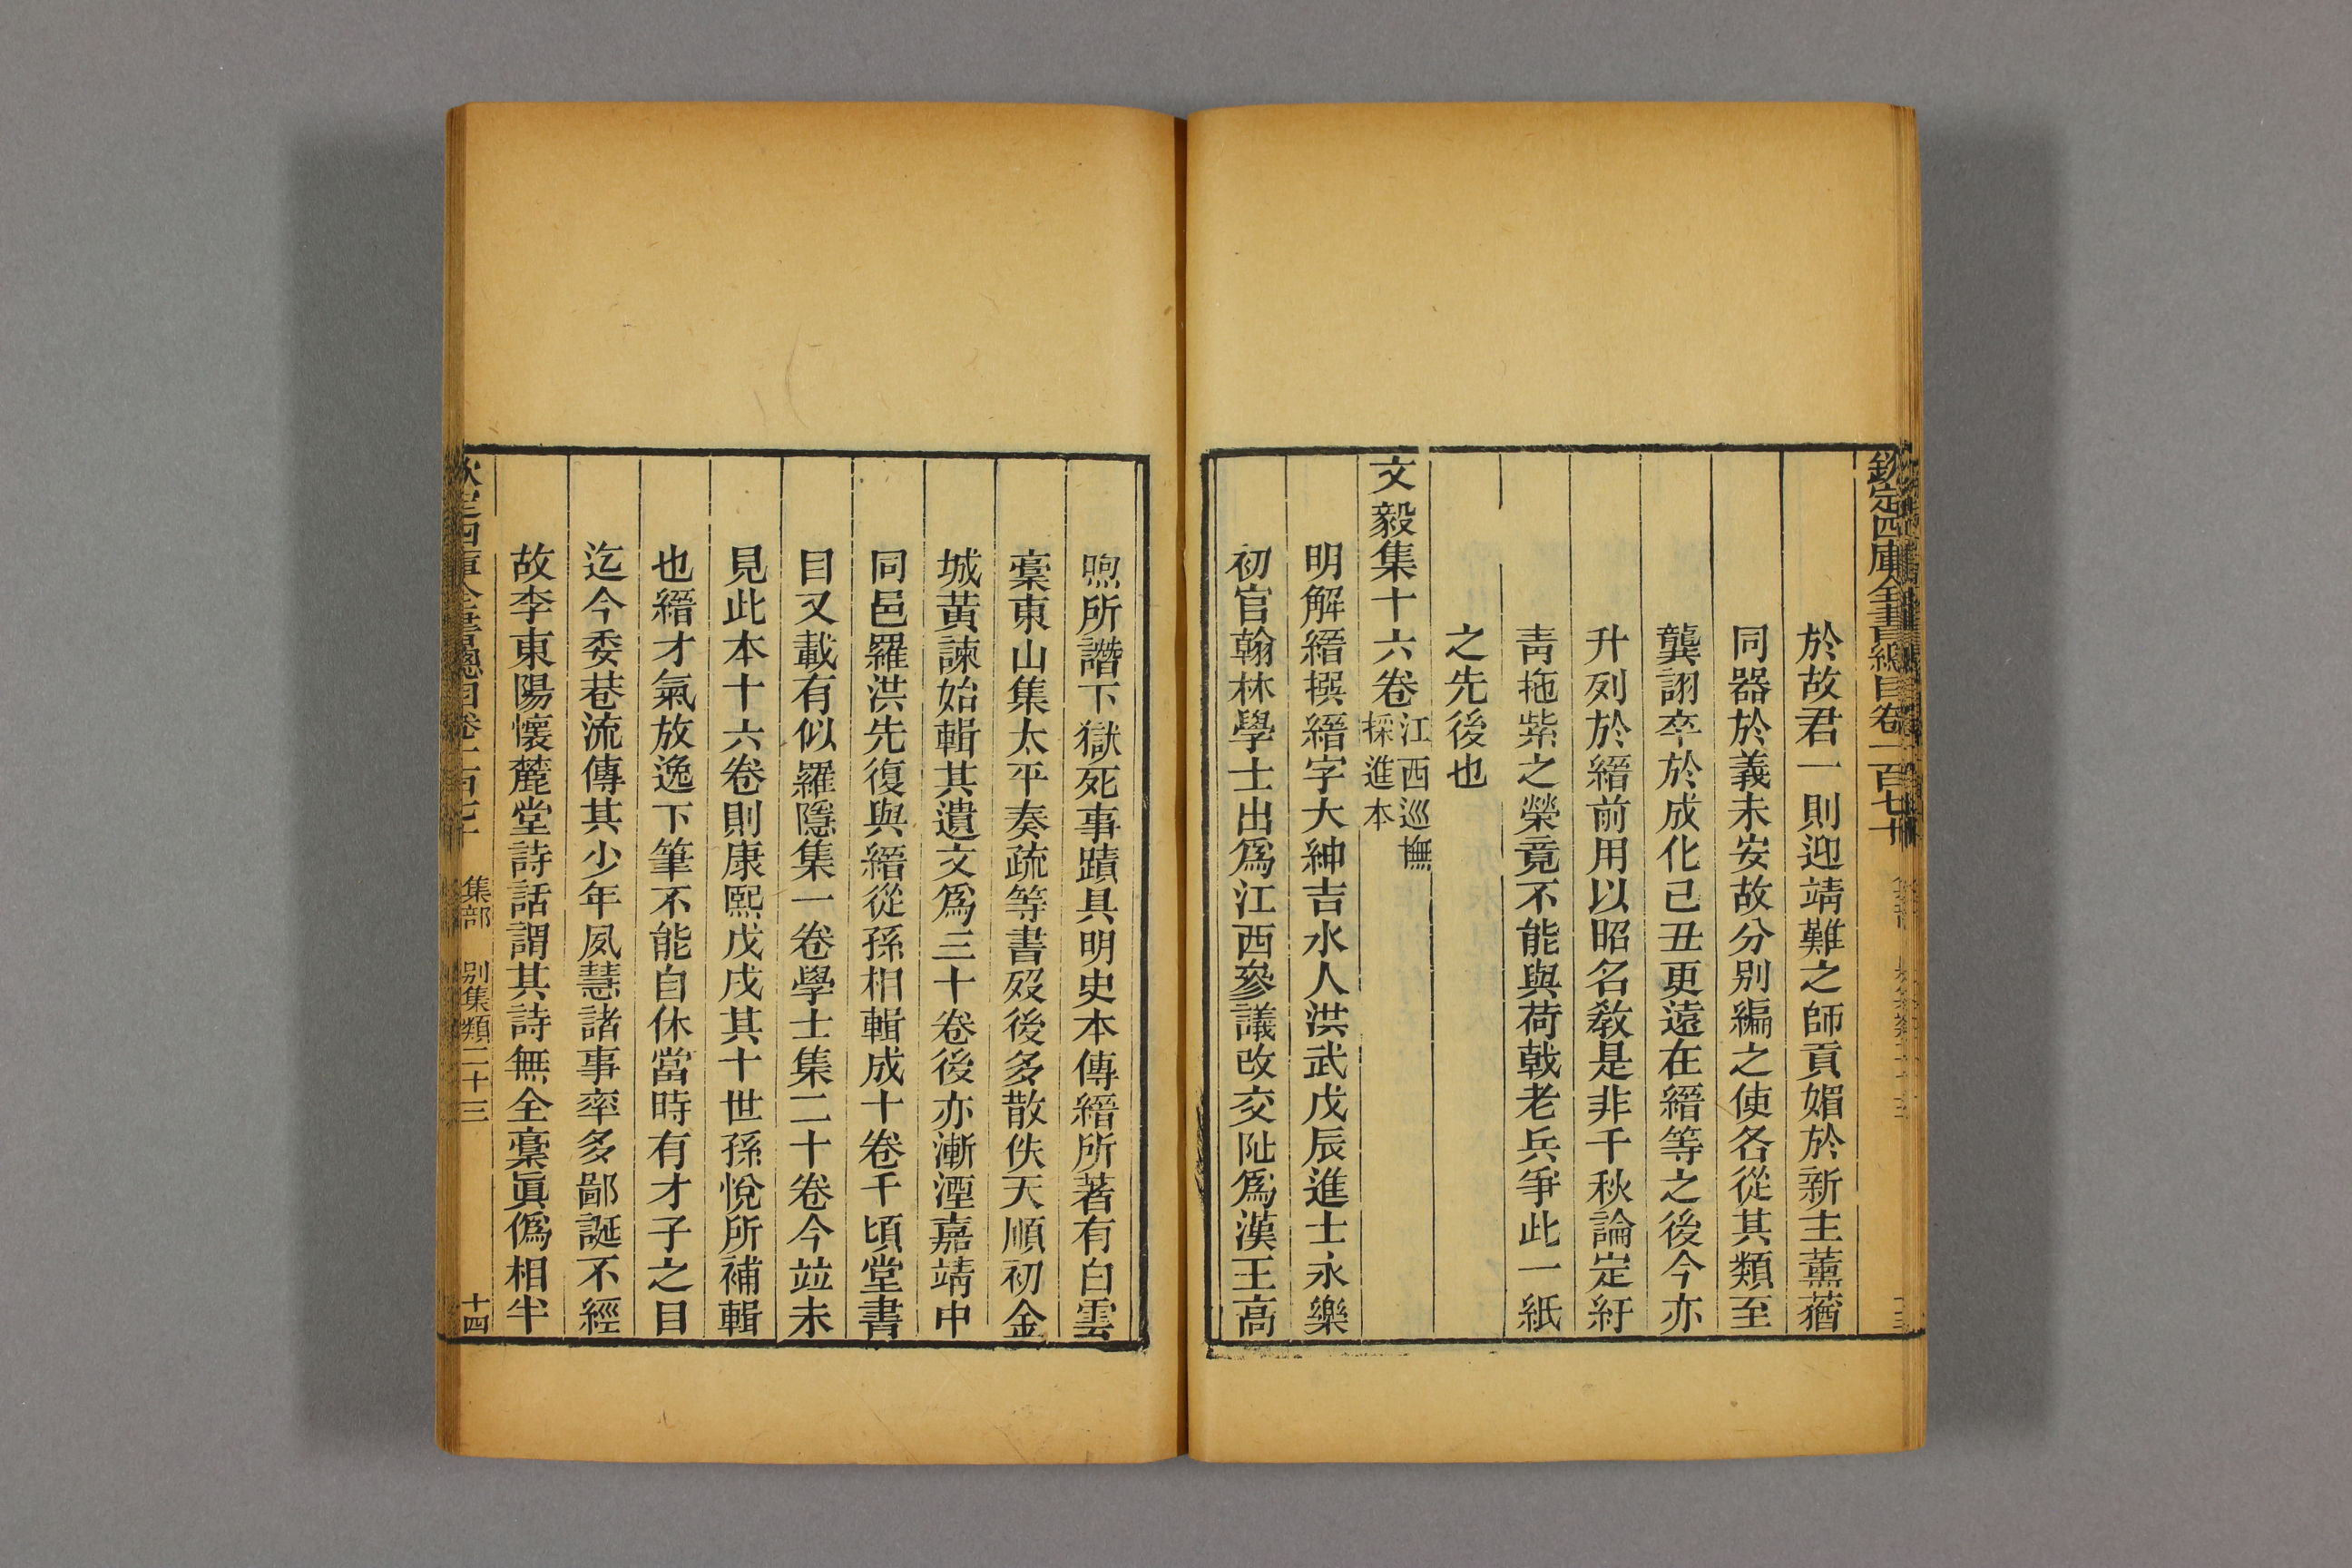 欽定四庫全書總目卷一百七十
於故君一則迎靖難之師貢媚於新主薰蕕
同器於義未安故分别編之使各從其類至
龔詡卒於成化己丑更遠在縉等之後今亦
升列於縉前用以昭名敎是非千秋論定紆
靑拖紫之榮竟不能與荷戟老兵爭此一紙
之先後也
文毅集十六卷江西巡撫採進本
明解縉撰縉字大紳吉水人洪武戊辰進士永樂
初官翰林學士出爲江西參議改交阯爲漢王高
煦所譖下獄死事蹟具明史本傳縉所著有白雲
稾東山集太平奏疏等書歿後多散佚天順初金
城黄諫始輯其遺文爲三十卷後亦漸湮嘉靖中
同邑羅洪先復與縉從孫相輯成十卷千頃堂書
目又載有似羅隱集一卷學士集二十卷今竝未
見此本十六卷則康熙戊戌其十世孫悅所補輯
也縉才氣放逸下筆不能自休當時有才子之目
迄今委巷流傳其少年夙慧諸事率多鄙誕不經
故李東陽懷麓堂詩話謂其詩無全稾眞僞相半
欽定四庫全書總目卷一百七十 集部 别集類二十三 十四